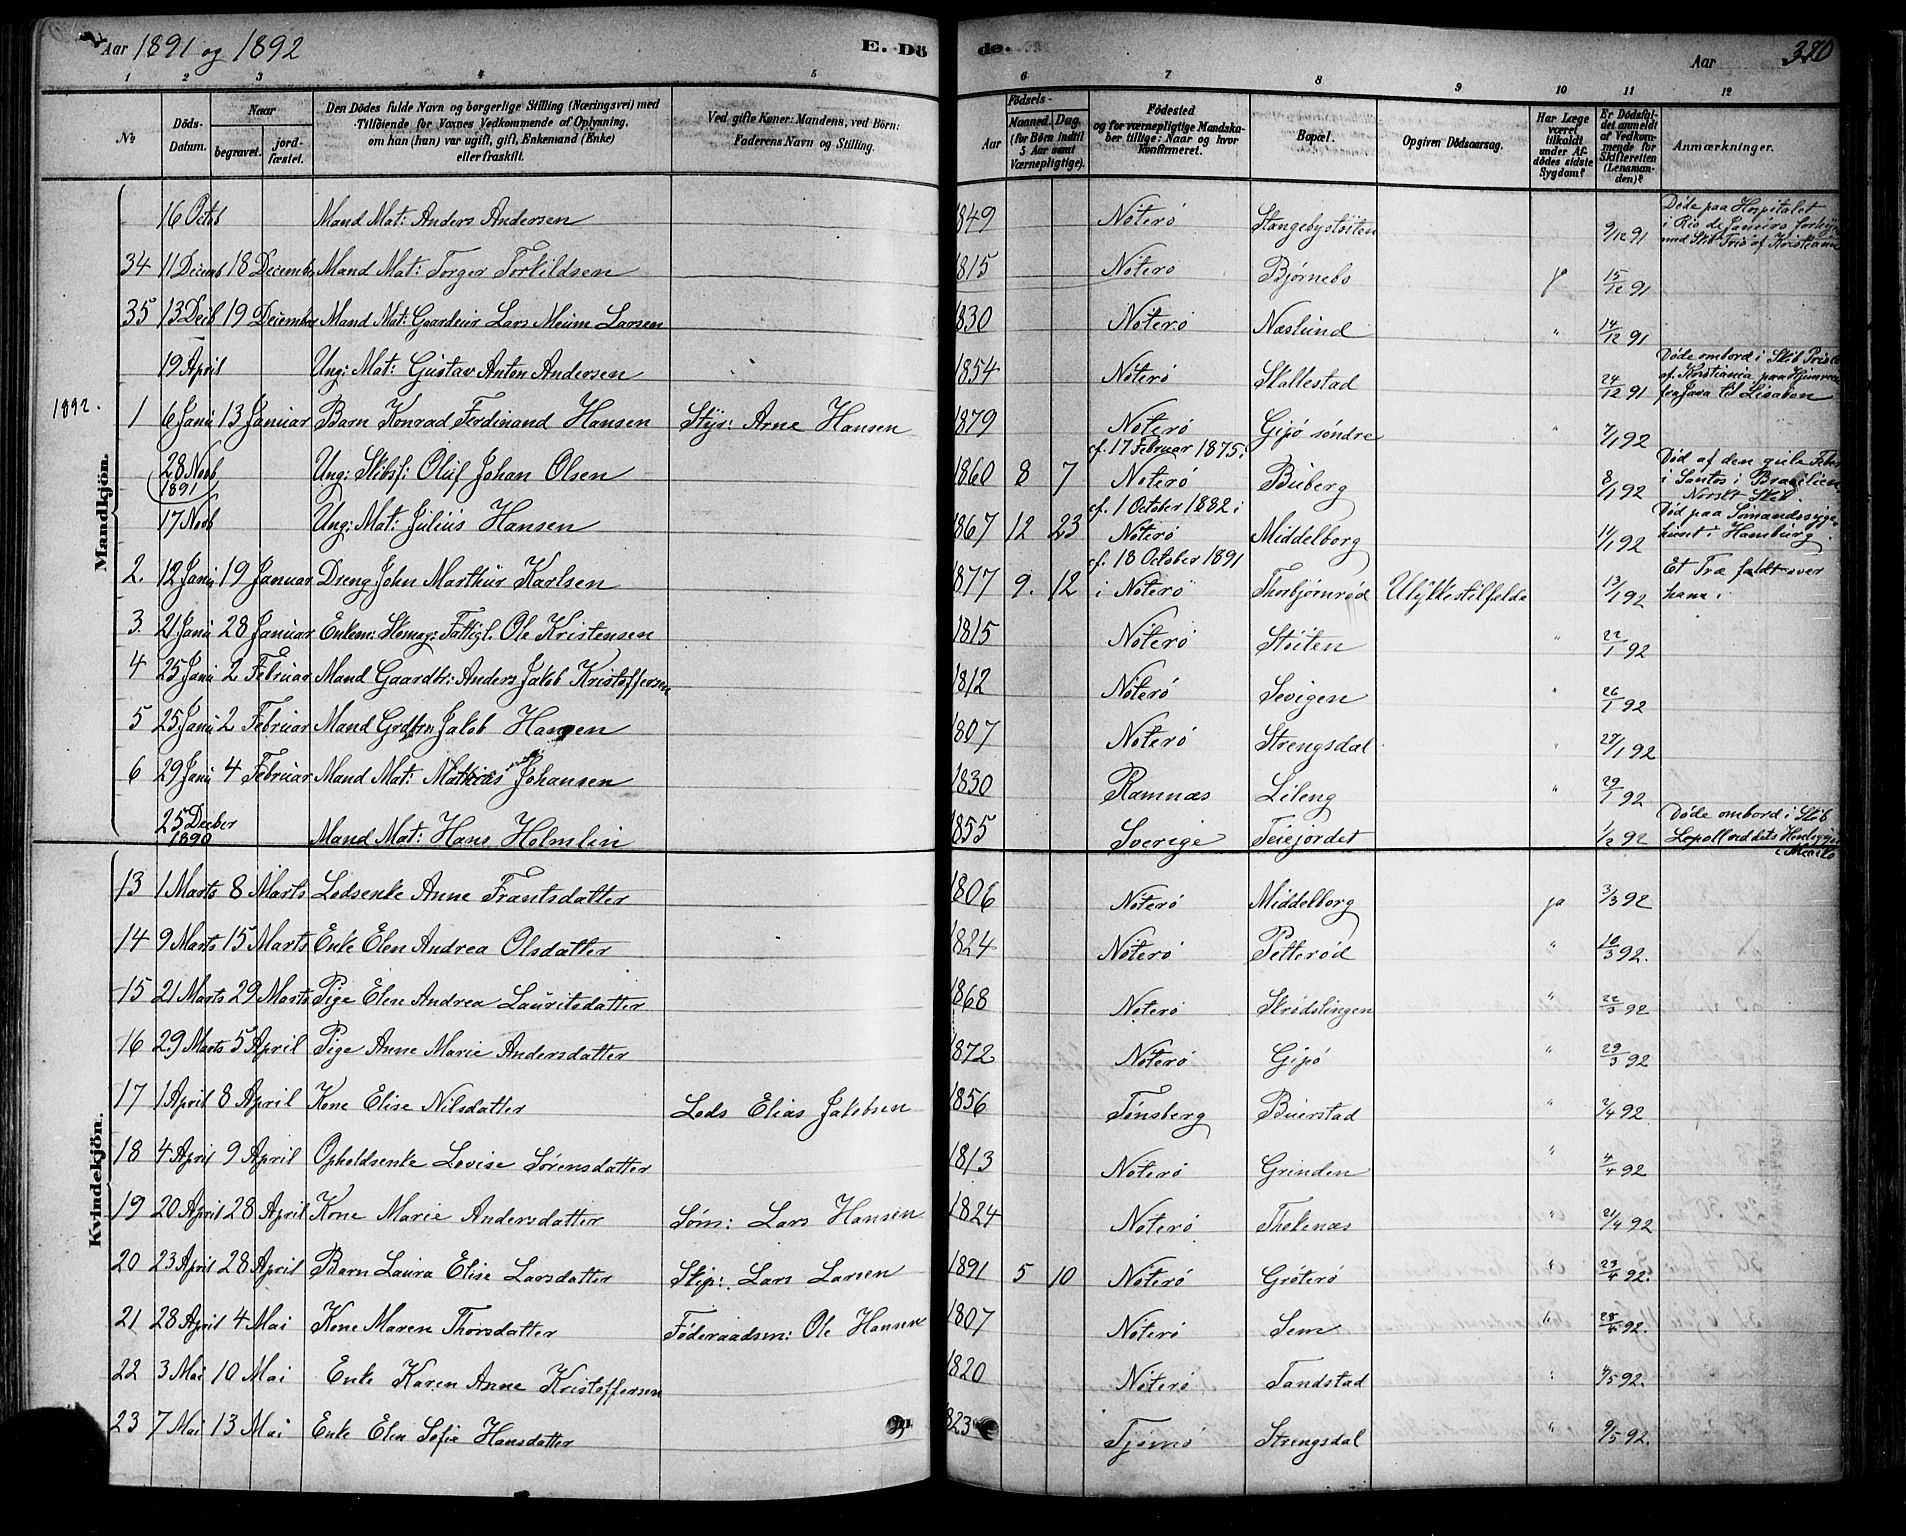 Aar 1891 og 1892 E. Dö
de. Aar 320
1 2 3 4 5 6 7 8 9 10 11 12
No
Döds-Datum.
Naar
begravet.
jordfæstet.
Den Dödes fulde Navn og borgerlige Stilling (Næringsvei) med
Tilföiende for Voxnes Vedkommende af Oplysning,
om han (hun) var ugift, gift, Enkemand (Enke)
eller fraskilt.
Ved gifte Koner: Mandens, ved Börn:
Faderens Navn og Stilling.
Födsels-
Aar
Maaned. Dag.
(for Börn indtil
5 Aar samt
Værnepligtige).
Födested
og for værnepligtige Mandska-
ber tillige: Naar og hvor
konfirmeret.
Bopæl.
Opgiven Dödsaarsag.
Har Læge
været
tilkaldt
under Af-
dödes sidste
Sygdom?
Er Dödsfal-
det anmeldt
af Vedkom-
mende for
Skifteretten
(Lensman-
den)?
Anmærkninger.
Mandkjön.
16 Octob Mand Mat: Anders Andersen 1849 Nøterø Stangebystøiten 9/12 91 Døde paa Hospitalet i Rio de Janeiro
34 11 Decemb 18 December Mand Mat: Torger Torkildsen 1815 Nøterø Bjørnebo 15/12 91
35 13 Decb 19 December Mand Mat: Gaardeier Lars Meum Larsen 1830 Nøterø Næslund " 14/12 91
19 April Ung: Mat: Gustav Anton Andersen 1854 Nøterø Skallestad 24/12 91 Døde ombord i Skib af Kristiania paa Hjemreise fra Java til Lisabon
1892.
1 6 Janu 13 Januar Barn Konrad Ferdinand Hansen Styr: Arne Hansen 1879 Nøterø Gipø søndre " 7/1 92
28 Novb 1891 Ung: Skibsf: Oluf Johan Olsen 1860 8 7 cf. 17 Februar 1875 i Nøterø Buberg 8/1 92 Død af den gule Feber i Santos i Brasilien Norsk Skib.
17 Novb Ung: Mat: Julius Hansen 1867 12 23 cf. 1 October 1882 i Nøterø Middelborg 11/1 92 Død paa Sømandssygehuset i Hamburg.
2. 12 Janu 19 Januar Dreng John Marthur Karlsen 1877 9. 12 cf. 18 October 1891 i Nøterø Thorbjørnrød Ulykkestilfælde 13/1 92 Et Træ faldt over ham.
3. 21 Janu 28 Januar Enkem: Skomag: Fattigl. Ole Kristensen 1815 Nøterø Støiten " 22/1 92
4 25 Janu 2 Februar Mand Gaardbr: Anders Jakob Kristoffersen 1812 Nøterø Sevigen " 26/1 92
5 25 Janu 2 Februar Mand Grdbrn Jakob Hansen 1807 Nøterø Strengsdal " 27/1 92
6 29 Janu 4 Februar Mand Mat: Mathias Johansen 1830 Ramnæs Lileng " 29/1 92
25 Decber 1890 Mand Mat: Hans Holmlin 1855 Sverige Teiejordet 1/2 92 Døde ombord i Skib
Kvindekjön.
13 1 Marts 8 Marts Lodsenke Anne Frantsdatter 1806 Nøterø Middelborg ja 3/3 92
14 9 Marts 15 Marts Enke Elen Andrea Olsdatter 1824 Nøterø Petterød " 10/3 92.
15 21 Marts 29 Marts Pige Elen Andrea Lauritsdatter 1868 Nøterø Skrødslingen " 22/3 92
16 29 Marts 5 April Pige Anne Marie Andersdatter 1872 Nøterø Gipø " 29/3 92
17 1 April 8 April Kone Elise Nilsdatter Lods Elias Jakobsen 1856 Tønsberg Buerstad " 2/4 92
18 4 April 9 April Opholdsenke Lovise Sørensdatter 1813 Nøterø Grinden " 4/4 92
19 20 April 28 April Kone Marie Andersdatter Søm: Lars Hansen 1824 Nøterø Tholenæs " 21/4 92
20 23 April 28 April Barn Laura Elise Larsdatter Skip: Lars Larsen 1891 5 10 Nøterø Grøterø " 23/4 92.
21 28 April 4 Mai Kone Maren Thorsdatter Føderaadsm: Ole Hansen 1807 Nøterø Sem " 28/4 92.
22 3 Mai 10 Mai Enke Karen Anne Kristoffersen 1820 Nøterø Tandstad " 4/5 92.
23 7 Mai 13 Mai Enke Elen Sofie Hansdatter 1823 Tjømø Strengsdal " 9/5 92.